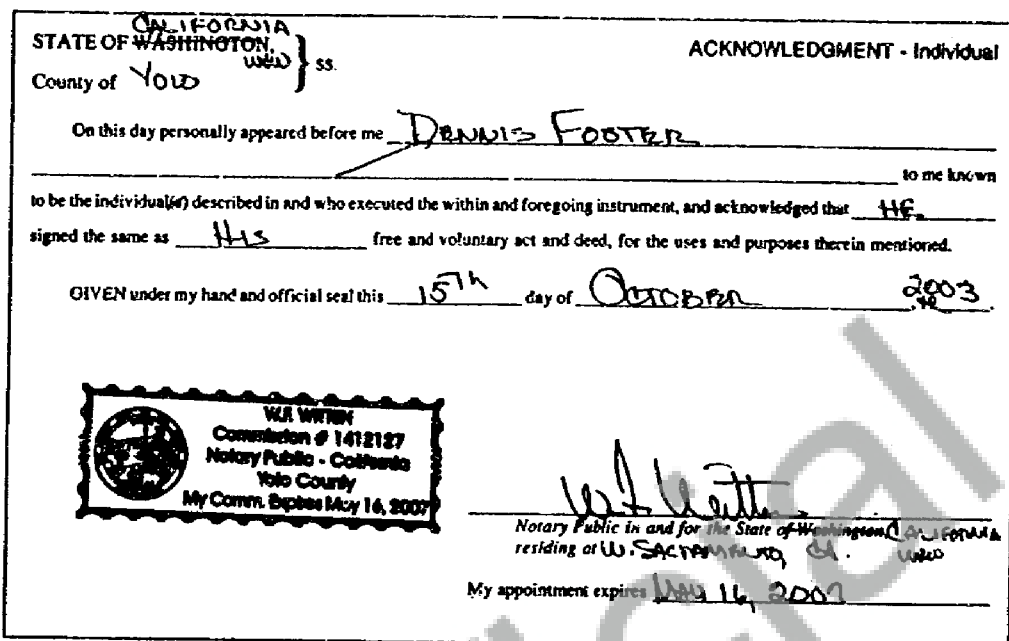 CALIFORNIA
STATE OF WASHINGTON, } ss.
ACKNOWLEDGMENT - Individual
County of YOLO
On this day personally appeared before me DENNIS FOOTER
to me known
to be the individual(s) described in and who executed the within and foregoing instrument, and acknowledged that HE
signed the same as HIS free and voluntary act and deed, for the uses and purposes therein mentioned.
GIVEN under my hand and official seal this 15Th day of OCTOBER 2003
Commission # 1412127
Notary Public - California
Yolo County
My Comm. Expires May 16, 2007
Notary Public in and for the State of Washington, CALIFORNIA
residing at W. SACRAMENTO, CA.
My appointment expires MAY 16, 2007